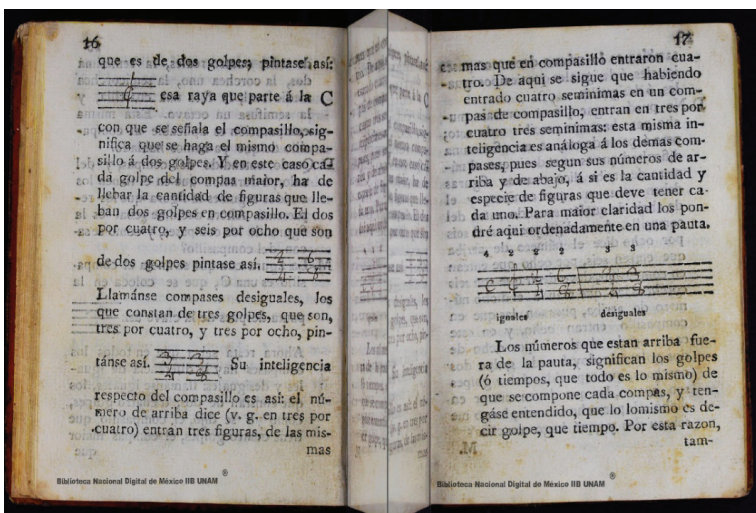 16
que es de dos golpes; píntase así:
esa raya que parte á la C
con que se señala el compasillo, sig-
nifica que se haga el mismo compa-
sillo á dos golpes. Y en este caso ca-
da golpe del compas maior, ha de
llebar la cantidad de figuras que lle-
ban dos golpes en compasillo. El dos
por cuatro, y seis por ocho que son
de dos golpes pintase asi.
Llamánse compases desiguales, los
que constan de tres golpes, que son,
tres por cuatro, y tres por ocho, pin-
tánse asi. Su inteligencia
respecto del compasillo es asi: el nú-
mero de arriba dice (v. g. en tres por
cuatro) entran tres figuras, de las mis-
mas
Biblioteca Nacional Digital de México IIB UNAM ®
17
mas que en compasillo entraron cua-
tro. De aqui se sigue que habiendo
entrado cuatro seminimas en un com-
pas de compasillo, entran en tres por
cuatro tres seminimas: esta misma in-
teligencia es análoga á los demas com-
pases, pues segun sus números de ar-
riba y de abajo, á si es la cantidad y
especie de figuras que deve tener ca-
da uno. Para maior claridad los pon-
dré aqui ordenadamente en una pauta.
4 2 2 2 3 3
iguales desiguales
Los números que estan arriba fue-
ra de la pauta, significan los golpes
(ó tiempos, que todo es lo mismo) de
que se compone cada compas, y ten-
gáse entendido, que lo lomismo es de-
cir golpe, que tiempo. Por esta razon,
tam-
Biblioteca Nacional Digital de México IIB UNAM ®